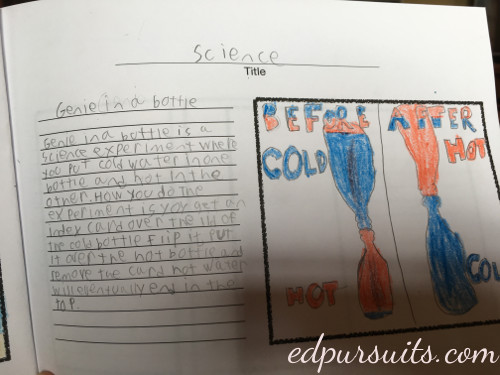 Science
Title
Genie in a bottle
Genie in a bottle is a
Science experiment where
you put cold water in one
bottle and hot in the
other. How you do the
experiment is you get an
Index card over the lid of
the cold bottle flip it put
it over the hot bottle and
remove the card hot water
will eventually end in the
top.
BEFORE
COLD
HOT
AFTER
HOT
COLD
edpursuits.com